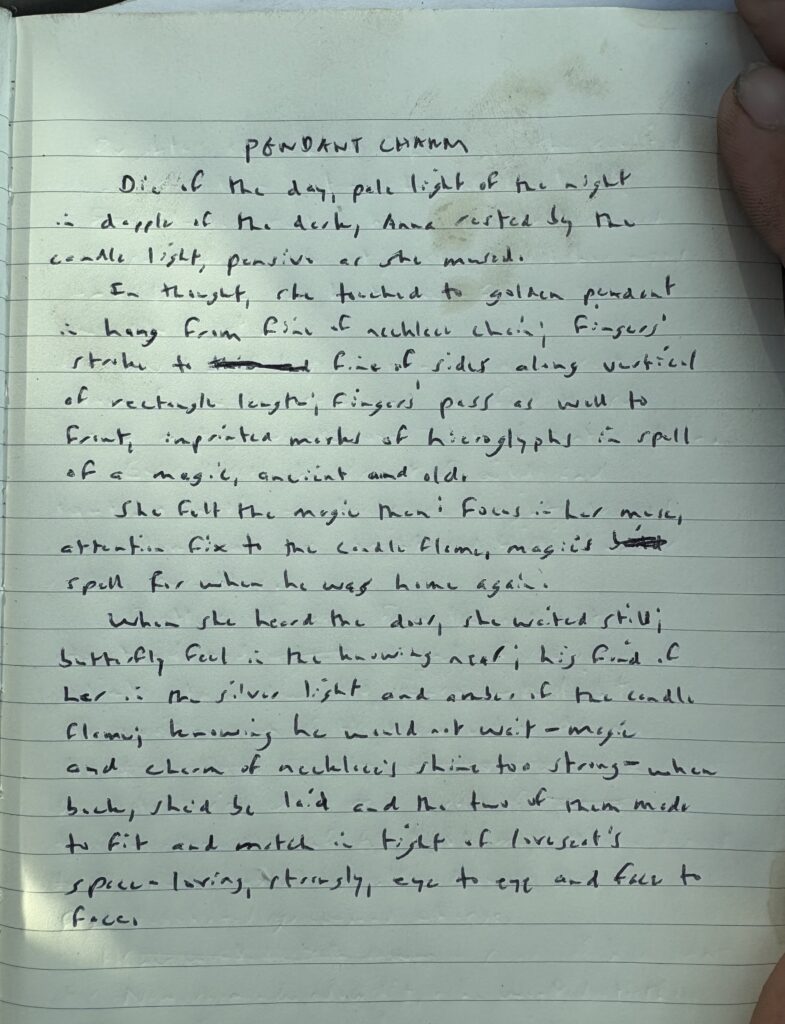 PENDANT CHARM
Die of the day, pale light of the night
in dapple of the dark, Anna rested by the
candle light, pensive as she mused.
In thought, she touched to golden pendant
in hang from fine of necklace chain; fingers'
stroke to fine of sides along vertical
of rectangle length; fingers' pass as well to
front, imprinted marks of hieroglyphs in spell
of a magic, ancient and old.
She felt the magic then: focus in her muse,
attention fix to the candle flame, magic's
spell for when he was home again.
When she heard the door, she waited still;
butterfly feel in the knowing near; his find of
her in the silver light and amber of the candle
flame; knowing he would not wait - magic
and charm of necklace's shine too strong - when
back, she'd be laid and the two of them made
to fit and match in tight of loveseat's
space - loving, strongly, eye to eye and face to
face.